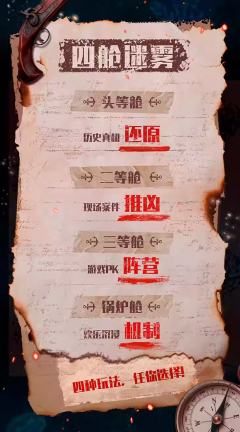 四舱迷雾
头等舱
历史真相 还原
二等舱
现场案件 推凶
三等舱
游戏PK 阵营
锅炉舱
欢乐沉浸 机制
四种玩法，任你选择!